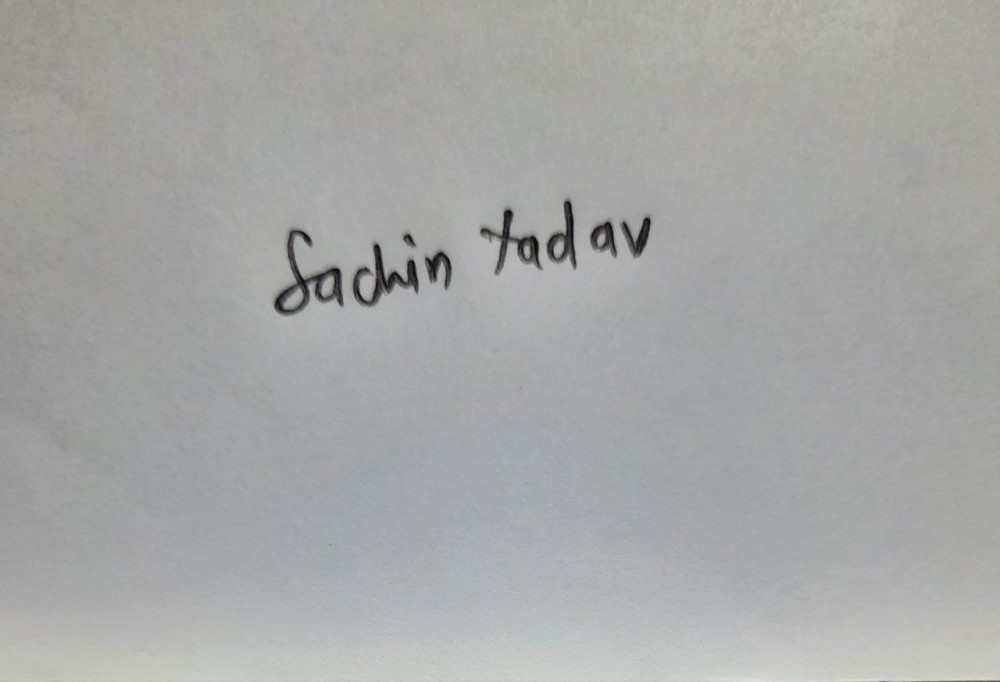 Sachin Yadav